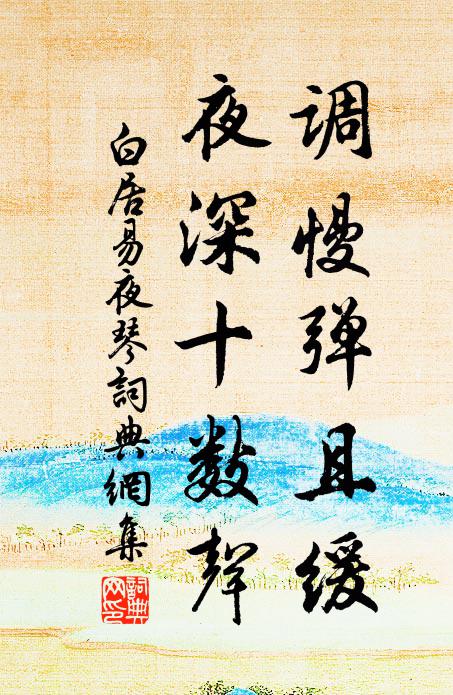 调慢弹且缓
夜深十数声
白居易夜琴詞典網集
詞典